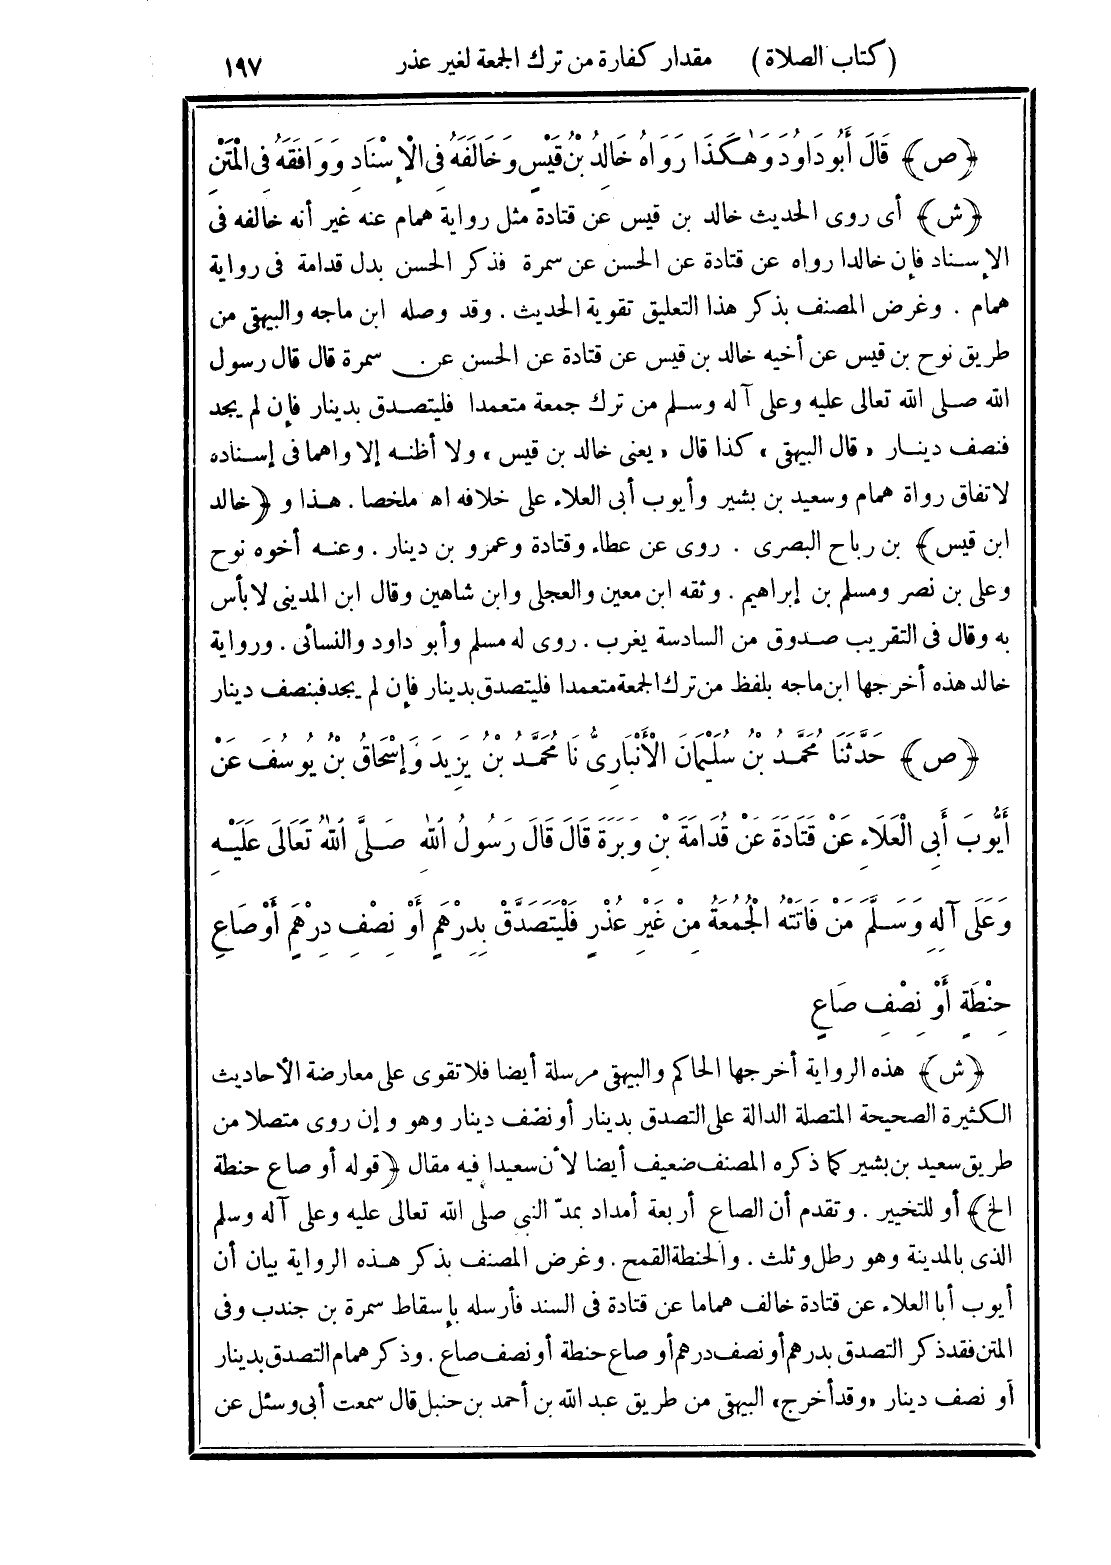 (كتاب الصلاة) مقدار كفارة من ترك الجمعة لغير عذر ١٩٧
﴿ص﴾ قَالَ أَبُو دَاوُدَ وَهَكَذَا رَوَاهُ خَالِدُ بْنُ قَيْسٍ وَخَالَفَهُ فِى الْإِسْنَادِ وَوَافَقَهُ فِى الْمَتْنِ
﴿ش﴾ أى روى الحديث خالد بن قيس عن قتادة مثل رواية همام عنه غير أنه خالفه فى
الإسناد فإن خالدا رواه عن قتادة عن الحسن عن سمرة فذكر الحسن بدل قدامة فى رواية
همام . وغرض المصنف بذكر هذا التعليق تقوية الحديث . وقد وصله ابن ماجه والبيهقى من
طريق نوح بن قيس عن أخيه خالد بن قيس عن قتادة عن الحسن عن سمرة قال قال رسول
الله صلى الله تعالى عليه وعلى آله وسلم من ترك جمعة متعمدا فليتصدق بدينار فإن لم يجد
فنصف دينار «قال البيهقى» كذا قال «يعنى خالد بن قيس» ولا أظنه إلا واهما فى إسناده
لاتفاق رواة همام وسعيد بن بشير وأيوب أبى العلاء على خلافه اه ملخصا . هذا و ﴿خالد
ابن قيس﴾ بن رباح البصرى . روى عن عطاء وقتادة وعمرو بن دينار . وعنه أخوه نوح
وعلى بن نصر ومسلم بن إبراهيم . وثقه ابن معين والعجلى وابن شاهين وقال ابن المدينى لا بأس
به وقال فى التقريب صدوق من السادسة يغرب . روى له مسلم وأبو داود والنسائى . ورواية
خالد هذه أخرجها ابن ماجه بلفظ من ترك الجمعة متعمدا فليتصدق بدينار فإن لم يجد فبنصف دينار
﴿ص﴾ حَدَّثَنَا مُحَمَّدُ بْنُ سُلَيْمَانَ الْأَنْبَارِىُّ نَا مُحَمَّدُ بْنُ يَزِيدَ وَإِسْحَاقُ بْنُ يُوسُفَ عَنْ
أَيُّوبَ أَبِى الْعَلَاءِ عَنْ قَتَادَةَ عَنْ قُدَامَةَ بْنِ وَبَرَةَ قَالَ قَالَ رَسُولُ اللهِ صَلَّى اللهُ تَعَالَى عَلَيْهِ
وَعَلَى آلِهِ وَسَلَّمَ مَنْ فَاتَتْهُ الْجُمُعَةُ مِنْ غَيْرِ عُذْرٍ فَلْيَتَصَدَّقْ بِدِرْهَمٍ أَوْ نِصْفِ دِرْهَمٍ أَوْ صَاعِ
حِنْطَةٍ أَوْ نِصْفِ صَاعٍ
﴿ش﴾ هذه الرواية أخرجها الحاكم والبيهقى مرسلة أيضا فلا تقوى على معارضة الأحاديث
الكثيرة الصحيحة المتصلة الدالة على التصدق بدينار أو نصف دينار وهو وإن روى متصلا من
طريق سعيد بن بشير كما ذكره المصنف ضعيف أيضا لأن سعيدا فيه مقال ﴿قوله أو صاع حنطة
الخ﴾ أو للتخيير . وتقدم أن الصاع أربعة أمداد بمدّ النبى صلى الله تعالى عليه وعلى آله وسلم
الذى بالمدينة وهو رطل وثلث . والحنطة القمح . وغرض المصنف بذكر هذه الرواية بيان أن
أيوب أبا العلاء عن قتادة خالف هماما عن قتادة فى السند فأرسله بإسقاط سمرة بن جندب وفى
المتن فقد ذكر التصدق بدرهم أو نصف درهم أو صاع حنطة أو نصف صاع . وذكر همام التصدق بدينار
أو نصف دينار «وقد أخرج» البيهقى من طريق عبد الله بن أحمد بن حنبل قال سمعت أبى وسئل عن